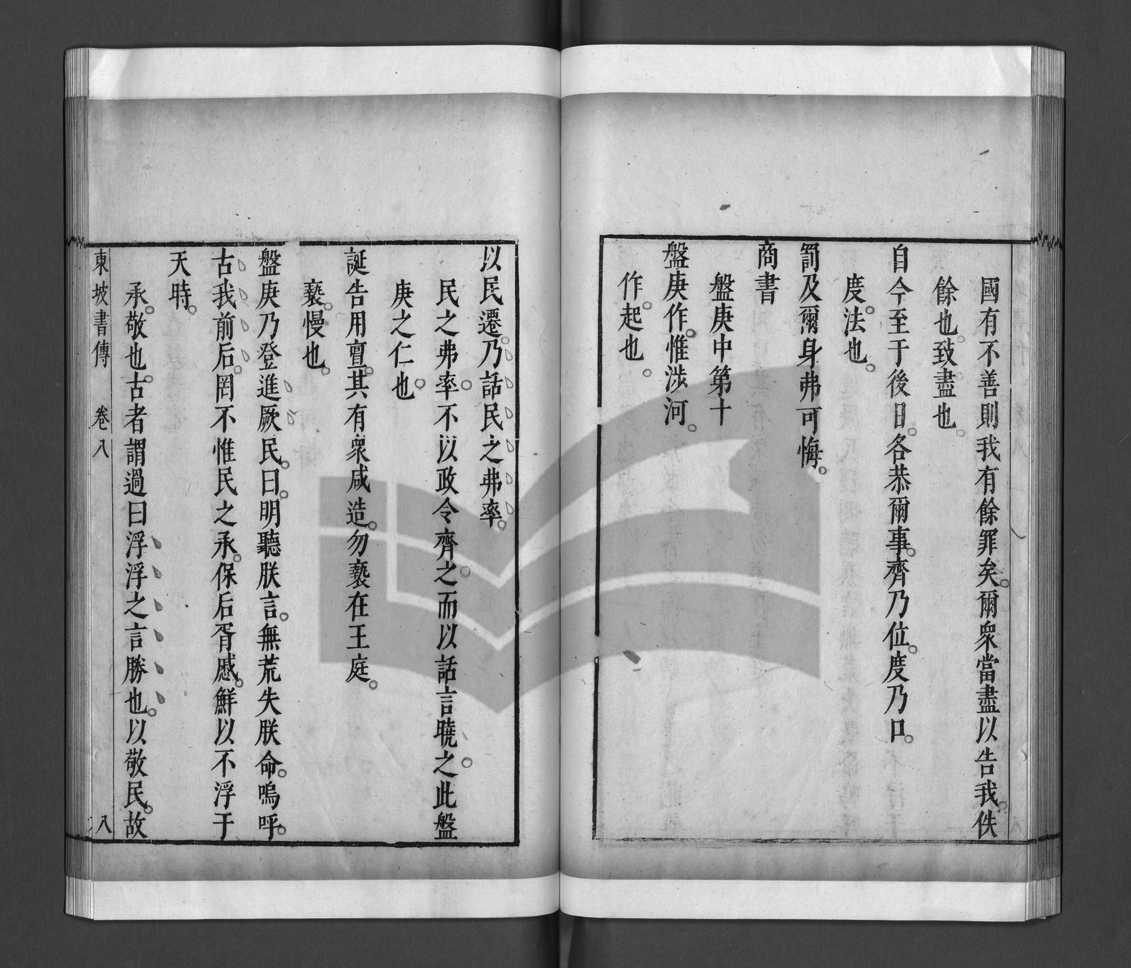 國有不善則我有餘罪矣。爾眾當盡以告我。佚
餘也。致盡也。
自今至于後日。各恭爾事。齊乃位。度乃口。
度。法也。
罰及爾身弗可悔。
商書
盤庚中第十
盤庚作。惟涉河。
作。起也。
以民遷。乃話民之弗率。
民之弗率。不以政令齊之。而以話言曉之。此盤
庚之仁也。
誕告用亶。其有衆咸造。勿褻在王庭。
褻。慢也。
盤庚乃登進厥民。曰。明聽朕言。無荒失朕命。嗚呼。
古我前后。罔不惟民之承。保后胥慼。鮮以不浮于
天時。
承。敬也。古者謂過曰浮。浮之言勝也。以敬民。故
東坡書傳 卷八 八